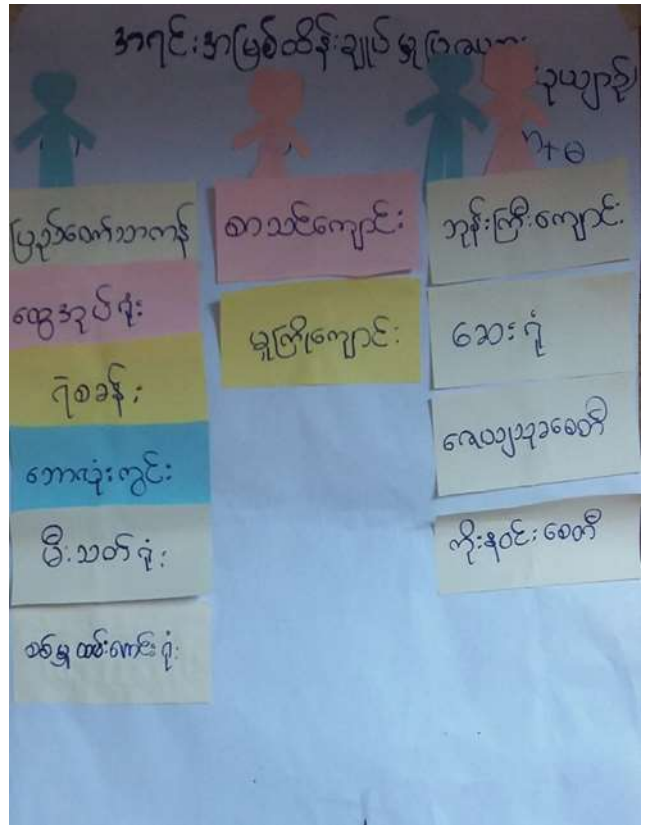 အရင်းအမြစ်ထိန်းချုပ်မှုပြဿနာ
ဥယျာဉ်
ကျ + မ
ပြည်တော်သာကန်
ထွေအုပ်ရုံး
ရဲစခန်း
ဘောလုံးကွင်း
မီးသတ်ရုံး
စစ်မှုထမ်းဟောင်းရုံး
စာသင်ကျောင်း
မူကြိုကျောင်း
ဘုန်းကြီးကျောင်း
ဆေးရုံ
ဇေယျသုခစေတီ
ကိုးနဝင်းစေတီ